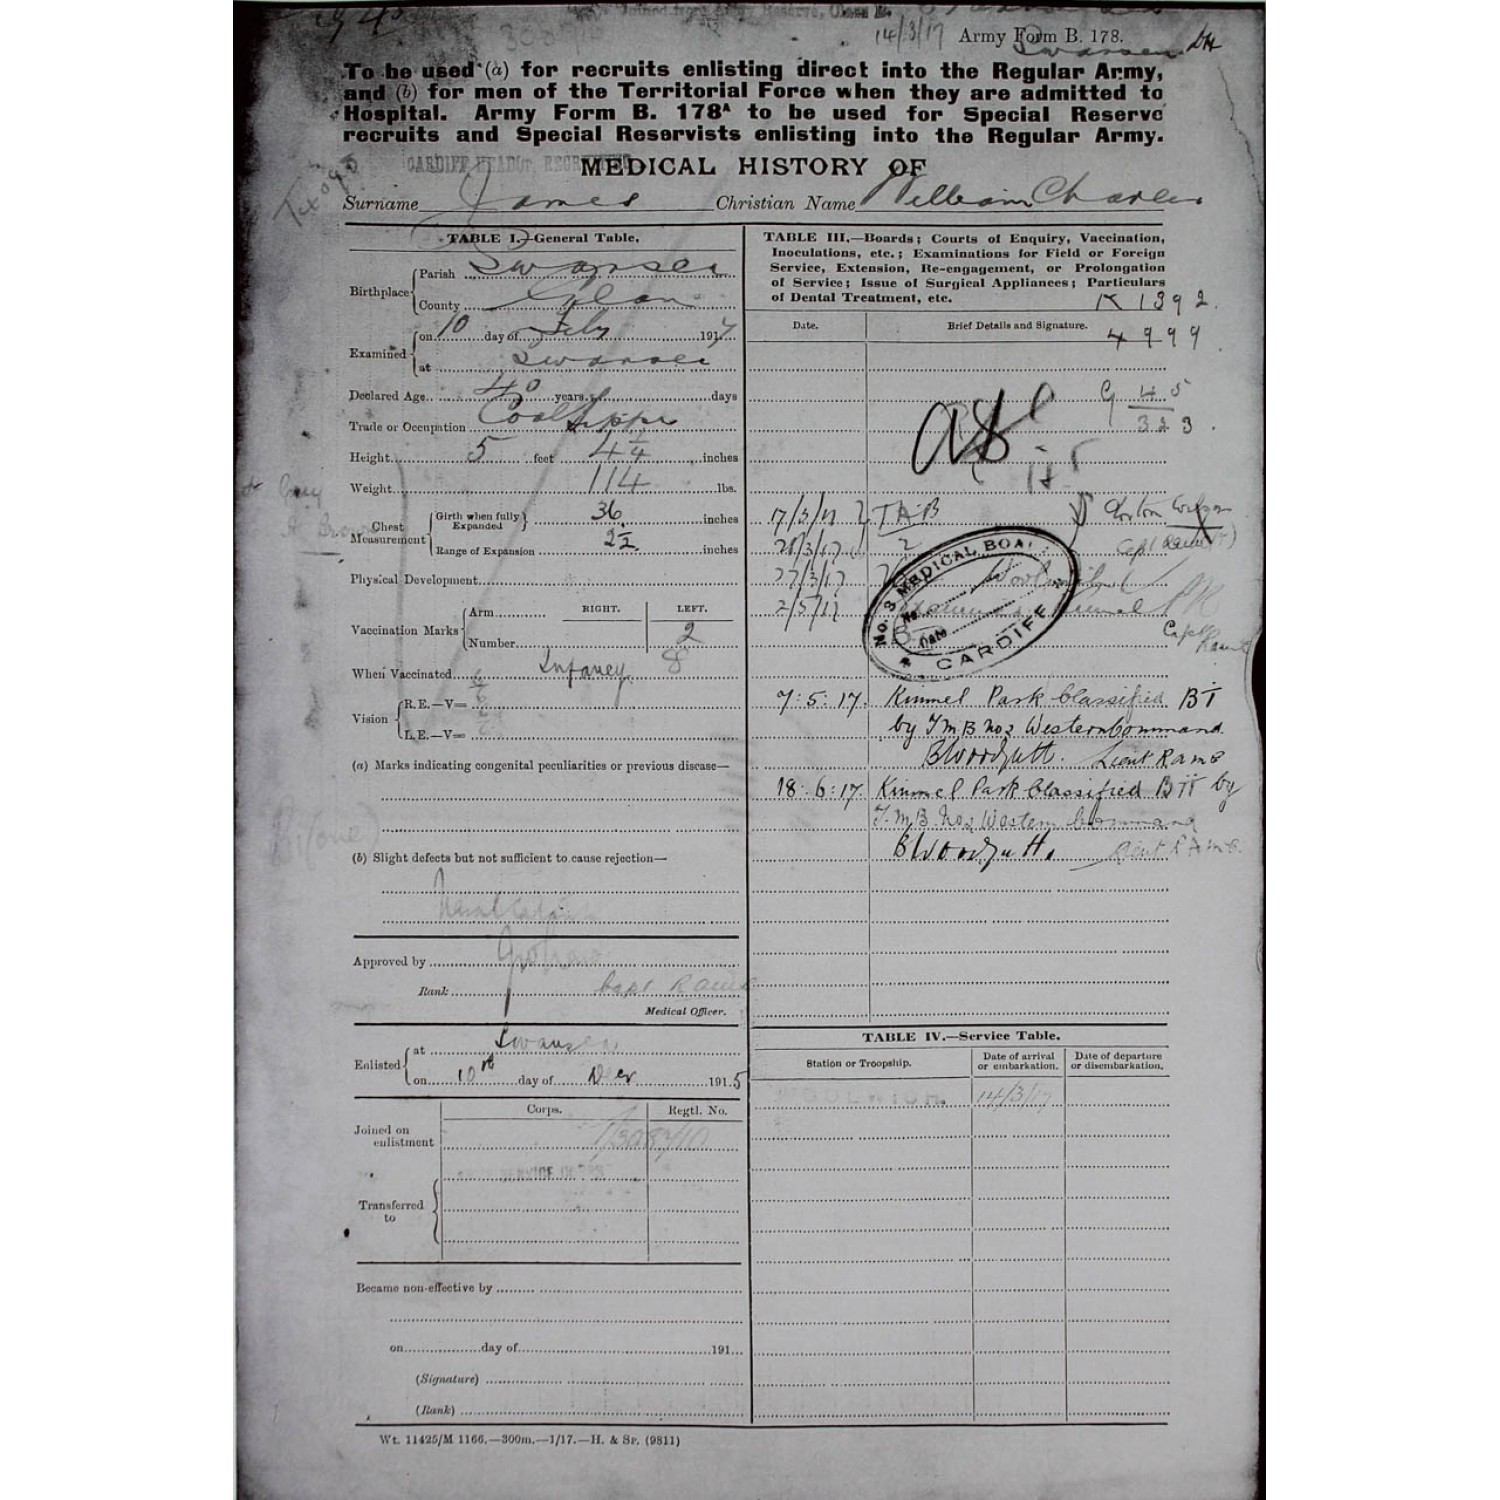 14/3/17 Army Form B. 178.
Swansea
To be used (a) for recruits enlisting direct into the Regular Army,
and (b) for men of the Territorial Force when they are admitted to
Hospital. Army Form B. 178A to be used for Special Reserve
recruits and Special Reservists enlisting into the Regular Army.
MEDICAL HISTORY OF
Surname James Christian Name William Charles
TABLE I.—General Table.
Birthplace
Parish Swansea
County Glam
Examined
on 10 day of July 1917
at Swansea
Declared Age 40 years days
Trade or Occupation Coal Tipper
Height 5 feet 4 1/4 inches
Weight 114 lbs.
Chest Measurement
Girth when fully Expanded 36 inches
Range of Expansion 2 1/2 inches
Physical Development
Vaccination Marks
Arm RIGHT. LEFT.
Number 2
When Vaccinated Infancy
Vision
R.E.—V=
L.E.—V=
(a) Marks indicating congenital peculiarities or previous disease—
(b) Slight defects but not sufficient to cause rejection—
Approved by
Rank Capt RAMC
Medical Officer.
Enlisted
at Swansea
on 10th day of Decr 1915
Corps. Regtl. No.
Joined on enlistment
Transferred to
Became non-effective by
on day of 191
(Signature)
(Rank)
Wt. 11425/M 1166.—300m.—1/17.—H. & Sp. (9811)
TABLE III.—Boards; Courts of Enquiry, Vaccination,
Inoculations, etc.; Examinations for Field or Foreign
Service, Extension, Re-engagement, or Prolongation
of Service; Issue of Surgical Appliances; Particulars
of Dental Treatment, etc.
K 1392.
Date. Brief Details and Signature.
4999.
45
323.
17/3/17 TAB
27/3/17
2/5/17
Capt
No. 3 MEDICAL BOARD
No.
Date
CARDIFF
7:5:17. Kinmel Park Classified BI
by T.M.B No 2 Western Command
B Woodgatt. Lieut RAMC
18:6:17. Kinmel Park Classified BII by
T.M.B. No 2 Western Command
B Woodgatt. Lieut RAMC.
TABLE IV.—Service Table.
Station or Troopship. Date of arrival or embarkation. Date of departure or disembarkation.
WOOLWICH. 14/3/17